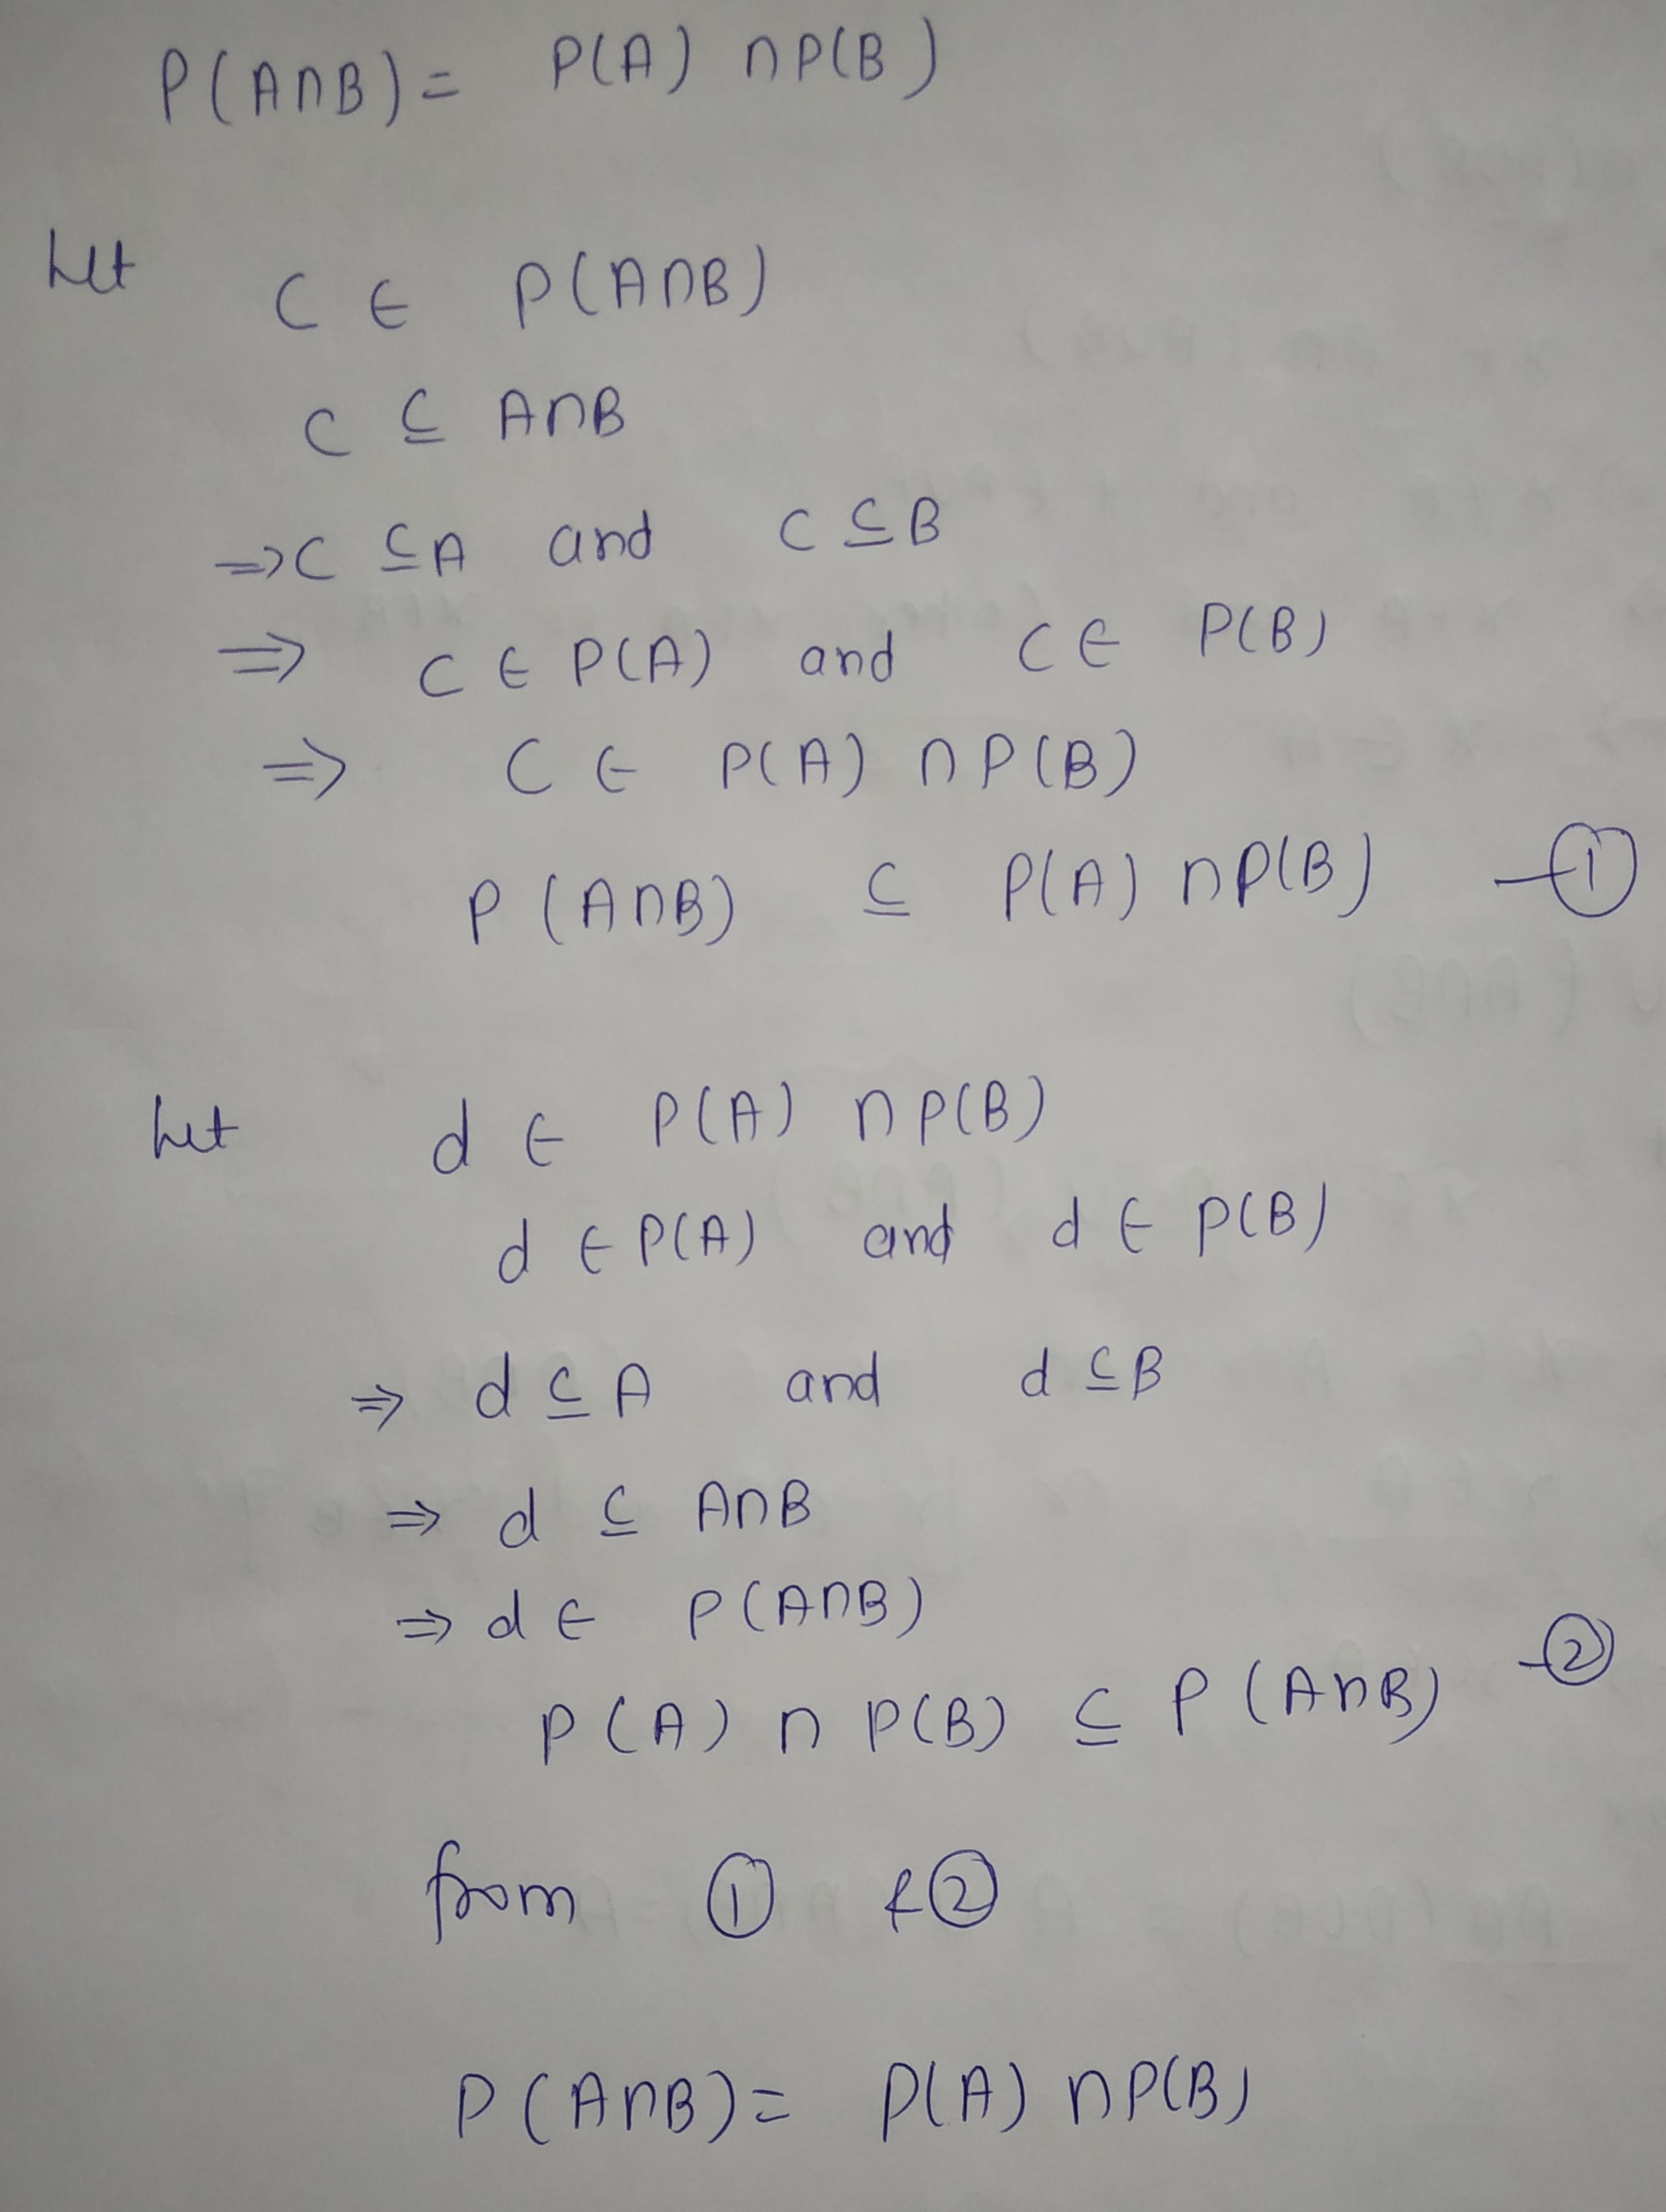 P(A∩B) = P(A) ∩ P(B)
Let C ∈ P(A∩B)
C ⊆ A∩B
⇒ C ⊆ A and C ⊆ B
⇒ C ∈ P(A) and C ∈ P(B)
⇒ C ∈ P(A) ∩ P(B)
P(A∩B) ⊆ P(A) ∩ P(B) —①
Let d ∈ P(A) ∩ P(B)
d ∈ P(A) and d ∈ P(B)
⇒ d ⊆ A and d ⊆ B
⇒ d ⊆ A∩B
⇒ d ∈ P(A∩B)
P(A) ∩ P(B) ⊆ P(A∩B) —②
from ① & ②
P(A∩B) = P(A) ∩ P(B)